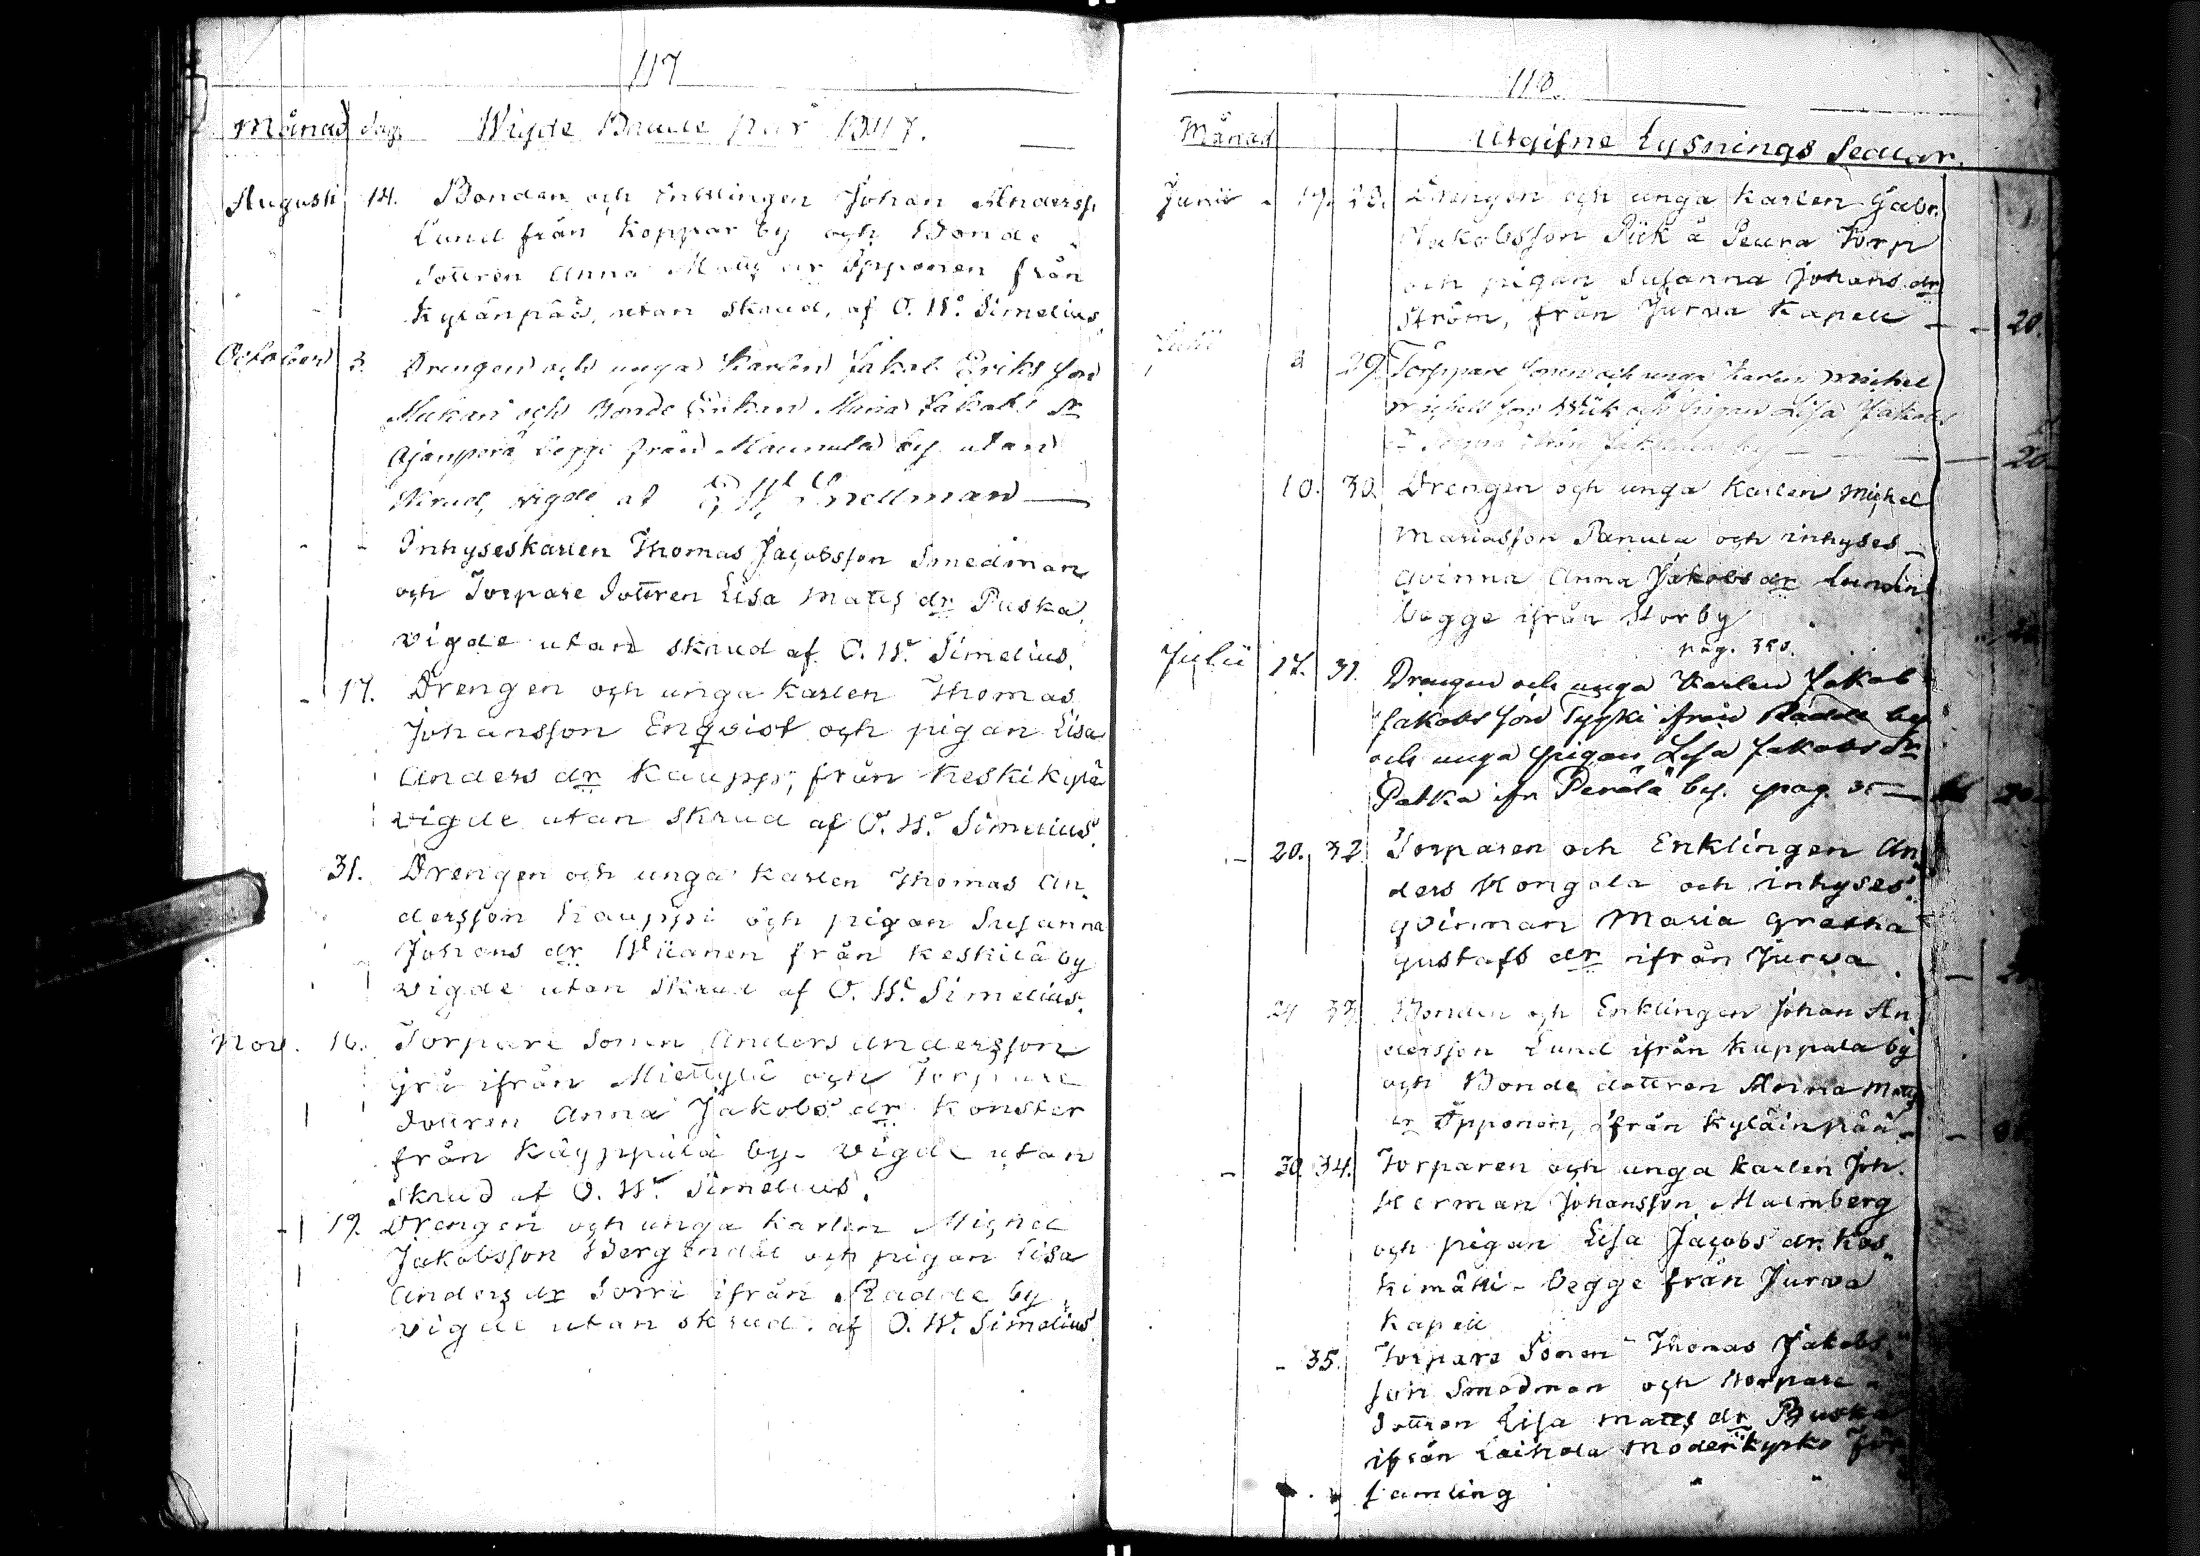 117
Månad dag. Wigde Brude par 1847.
Augusti 14. Bonden och Enklingen Johan Anderss.
Lund från Koppar by och Bonde
dottren Anna Matts dr Öpponen från
Kylänpää, utan skrud, af O. W. Simelius.
October 3. Drengen och unga Karlen Jakob Eriks son
och Bonde Enkan Maria Jakobs dr
begge från Maunula by utan
skrud, vigde af Snellman
Inhyseskarlen Thomas Jacobsson Smedman
och Torpare dottren Lisa Matts dr Puska,
vigde utan skrud af O. W. Simelius.
17. Drengen och unga karlen Thomas
Johansson Enqvist och pigan Lisa
Anders dr Kauppi, från Keskikylä
vigde utan skrud af O. W. Simelius.
31. Drengen och unga karlen Thomas An,
dersson Kauppi och pigan Susanna
Johans dr Wiianen från Keskilä by
vigde utan skrud af O. W. Simelius.
Nov. 16. Torpare sonen Anders Andersson
Grå ifrån Miettylä och Torpare
dottren Anna Jakobs dr Konster
från Käyppälä by - vigde utan
skrud af O. W. Simelius.
19. Drengen och unga karlen Michel
Jakobsson Bergendal och pigan Lisa
Anders dr Sorri ifrån Radde by,
vigde utan skrud. af O. W. Simelius.
118.
Månad Utgifne Lysnings Sedlar.
Junii 19. 28. Drengen och unga karlen Gabr.
Jakobsson Piik å Peura Torp
och pigan Susanna Johans dr
Ström, från Jurva Kapell 20.
29. Torppare sonen och unga Karlen Michel
Michels son Wiik och pigan Lisa Jakobs
dr 20
10. 30. Drengen och unga Karlen Michel
Mariasson Panula och inhyses
qvinna Anna Jakobs dr Lundin
begge ifrån Storby
pag. 350.
Julii 17. 31. Drengen och unga Karlen Jakob
Jakobs son Tyyski ifrån Radde by
och unga pigan Lisa Jakobs dr
Patka ifr Perälä by. pag. 20
20. 32. Torparen och Enklingen An,
ders Kongola och inhyses
qvinnan Maria Greta
Gustafs dr ifrån Jurva.
24 33. Bonden och Enklingen Johan An,
dersson Lund ifrån Kuppala by
och Bonde dottren Anna Matts
dr Öpponen, ifrån Kyläinpää
30. 34. Torparen och unga karlen Joh.
Herman Johansson Malmberg
och pigan Lisa Jacobs dr. Kos,
kimäki - begge från Jurva
Kapell
35. Torpare Sonen Thomas Jakobs,
son Smedman och torpare
dottren Lisa Matts dr Puska
ifrån Laihola Moderkyrko För
samling